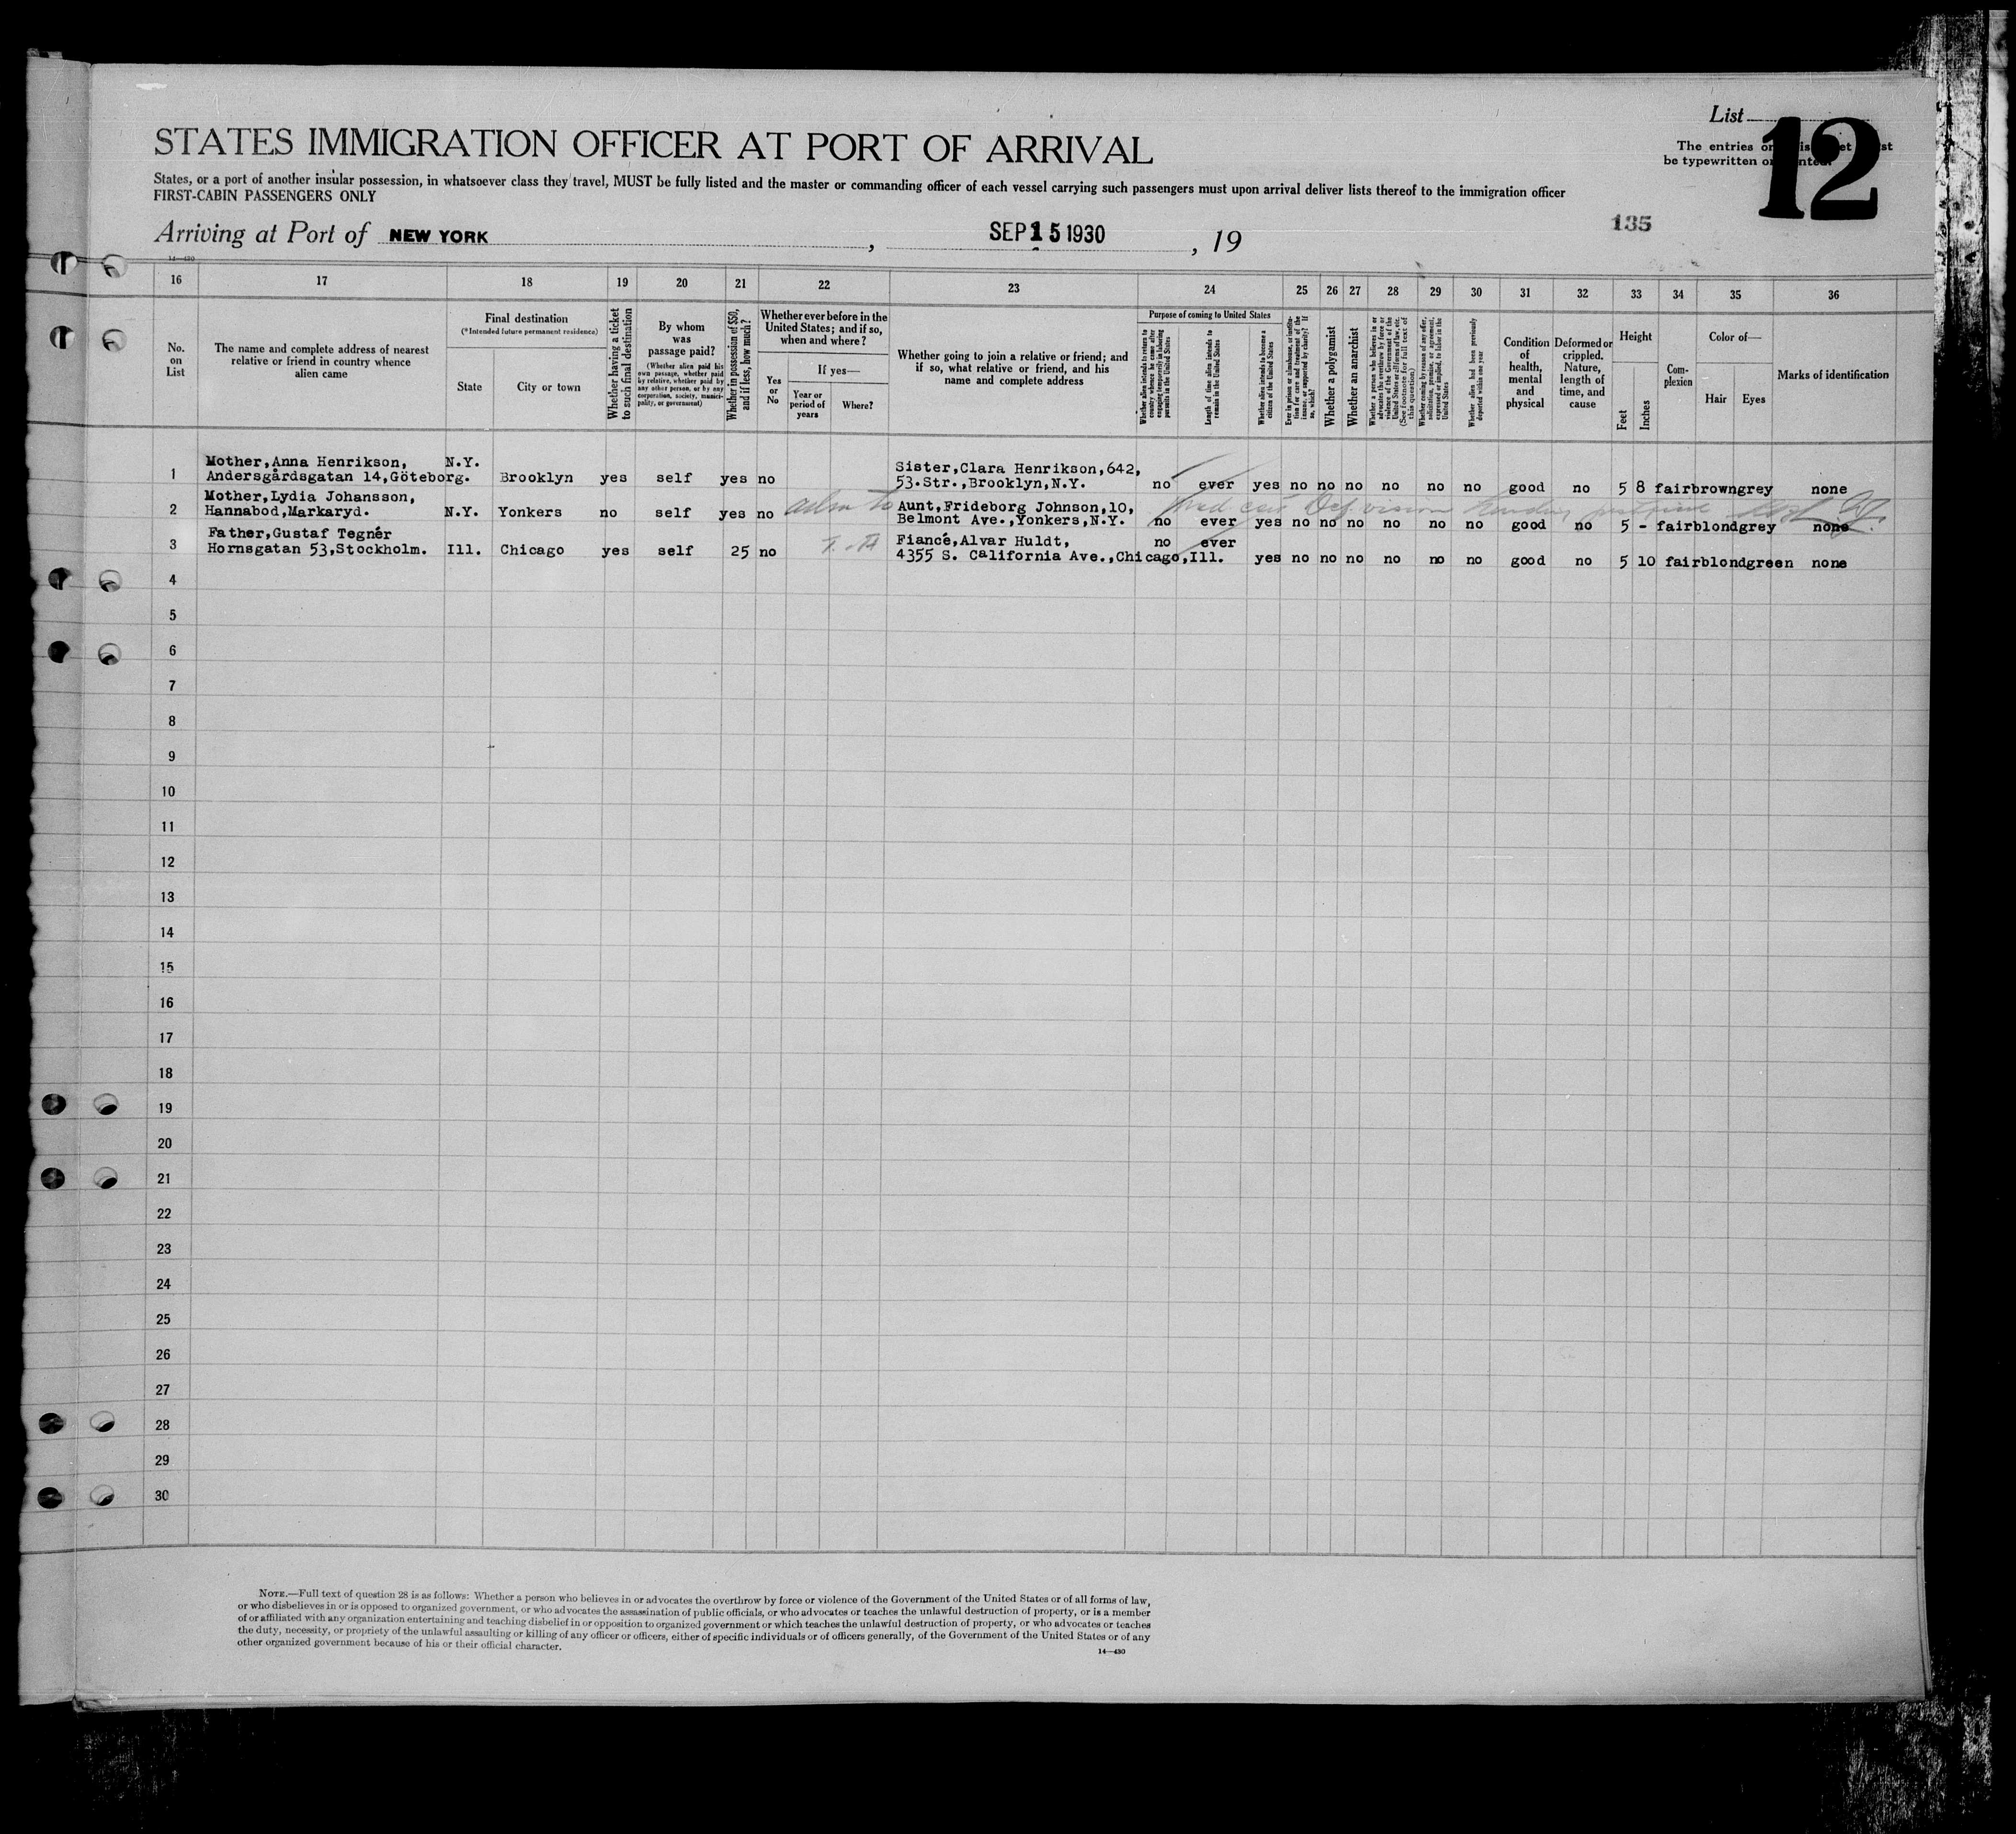 List
12
The entries on
be typewritten or
STATES IMMIGRATION OFFICER AT PORT OF ARRIVAL
States, or a port of another insular possession, in whatsoever class they travel, MUST be fully listed and the master or commanding officer of each vessel carrying such passengers must upon arrival deliver lists thereof to the immigration officer
FIRST-CABIN PASSENGERS ONLY
135
Arriving at Port of NEW YORK, SEP 15 1930, 19
14—430
16 17 18 19 20 21 22 23 24 25 26 27 28 29 30 31 32 33 34 35 36
No. on List
The name and complete address of nearest relative or friend in country whence alien came
Final destination
(*Intended future permanent residence)
State
City or town
Whether having a ticket to such final destination
By whom was passage paid?
(Whether alien paid his own passage, whether paid by relative, whether paid by any other person, or by any corporation, society, municipality, or government)
Whether in possession of $50, and if less, how much?
Whether ever before in the United States; and if so, when and where?
Yes or No
If yes—
Year or period of years
Where?
Whether going to join a relative or friend; and if so, what relative or friend, and his name and complete address
Purpose of coming to United States
Whether alien intends to return to country whence he came after engaging temporarily in laboring pursuits in the United States
Length of time alien intends to remain in the United States
Whether alien intends to become a citizen of the United States
Ever in prison or almshouse, or institution for care and treatment of the insane, or supported by charity? If so, which?
Whether a polygamist
Whether an anarchist
Whether a person who believes in or advocates the overthrow by force or violence of the Government of the United States or all forms of law, etc. (See footnote for full text of this question)
Whether coming by reason of any offer, solicitation, promise, or agreement, expressed or implied, to labor in the United States
Whether alien had been previously deported within one year
Condition of health, mental and physical
Deformed or crippled. Nature, length of time, and cause
Height
Feet
Inches
Complexion
Color of—
Hair
Eyes
Marks of identification
1 Mother,Anna Henrikson, N.Y. Sister,Clara Henrikson,642,
Andersgårdsgatan 14,Göteborg. Brooklyn yes self yes no 53.Str.,Brooklyn,N.Y. no ever yes no no no no no no good no 5 8 fair brown grey none
2 Mother,Lydia Johansson, Aunt,Frideborg Johnson,10,
Hannabod,Markaryd. N.Y. Yonkers no self yes no Belmont Ave.,Yonkers,N.Y. no ever yes no no no no no no good no 5 - fair blond grey none
3 Father,Gustaf Tegnér Fiancé,Alvar Huldt, no ever
Hornsgatan 53,Stockholm. Ill. Chicago yes self 25 no 4355 S. California Ave.,Chicago,Ill. yes no no no no no no good no 5 10 fair blond green none
4
5
6
7
8
9
10
11
12
13
14
15
16
17
18
19
20
21
22
23
24
25
26
27
28
29
30
NOTE.—Full text of question 28 is as follows: Whether a person who believes in or advocates the overthrow by force or violence of the Government of the United States or of all forms of law,
or who disbelieves in or is opposed to organized government, or who advocates the assassination of public officials, or who advocates or teaches the unlawful destruction of property, or is a member
of or affiliated with any organization entertaining and teaching disbelief in or opposition to organized government or which teaches the unlawful destruction of property, or who advocates or teaches
the duty, necessity, or propriety of the unlawful assaulting or killing of any officer or officers, either of specific individuals or of officers generally, of the Government of the United States or of any
other organized government because of his or their official character.
14—430